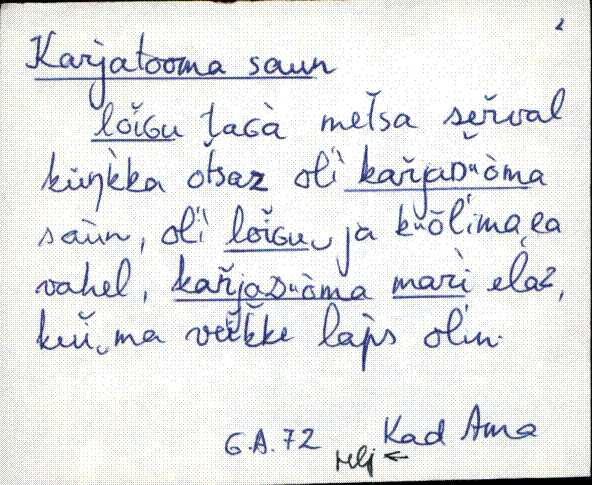 Karjatooma saun
lŏĭGu taGà metsa seřval
küŋ̀kka otsaz olì kařjaDᵘòma
saùn, olì lŏĭGu, ja kᵘòlimäea
vahel, kařjaDᵘòma marì elaz,
kuì ma veìkke laps olin.
G.A. 72 Kad Anna